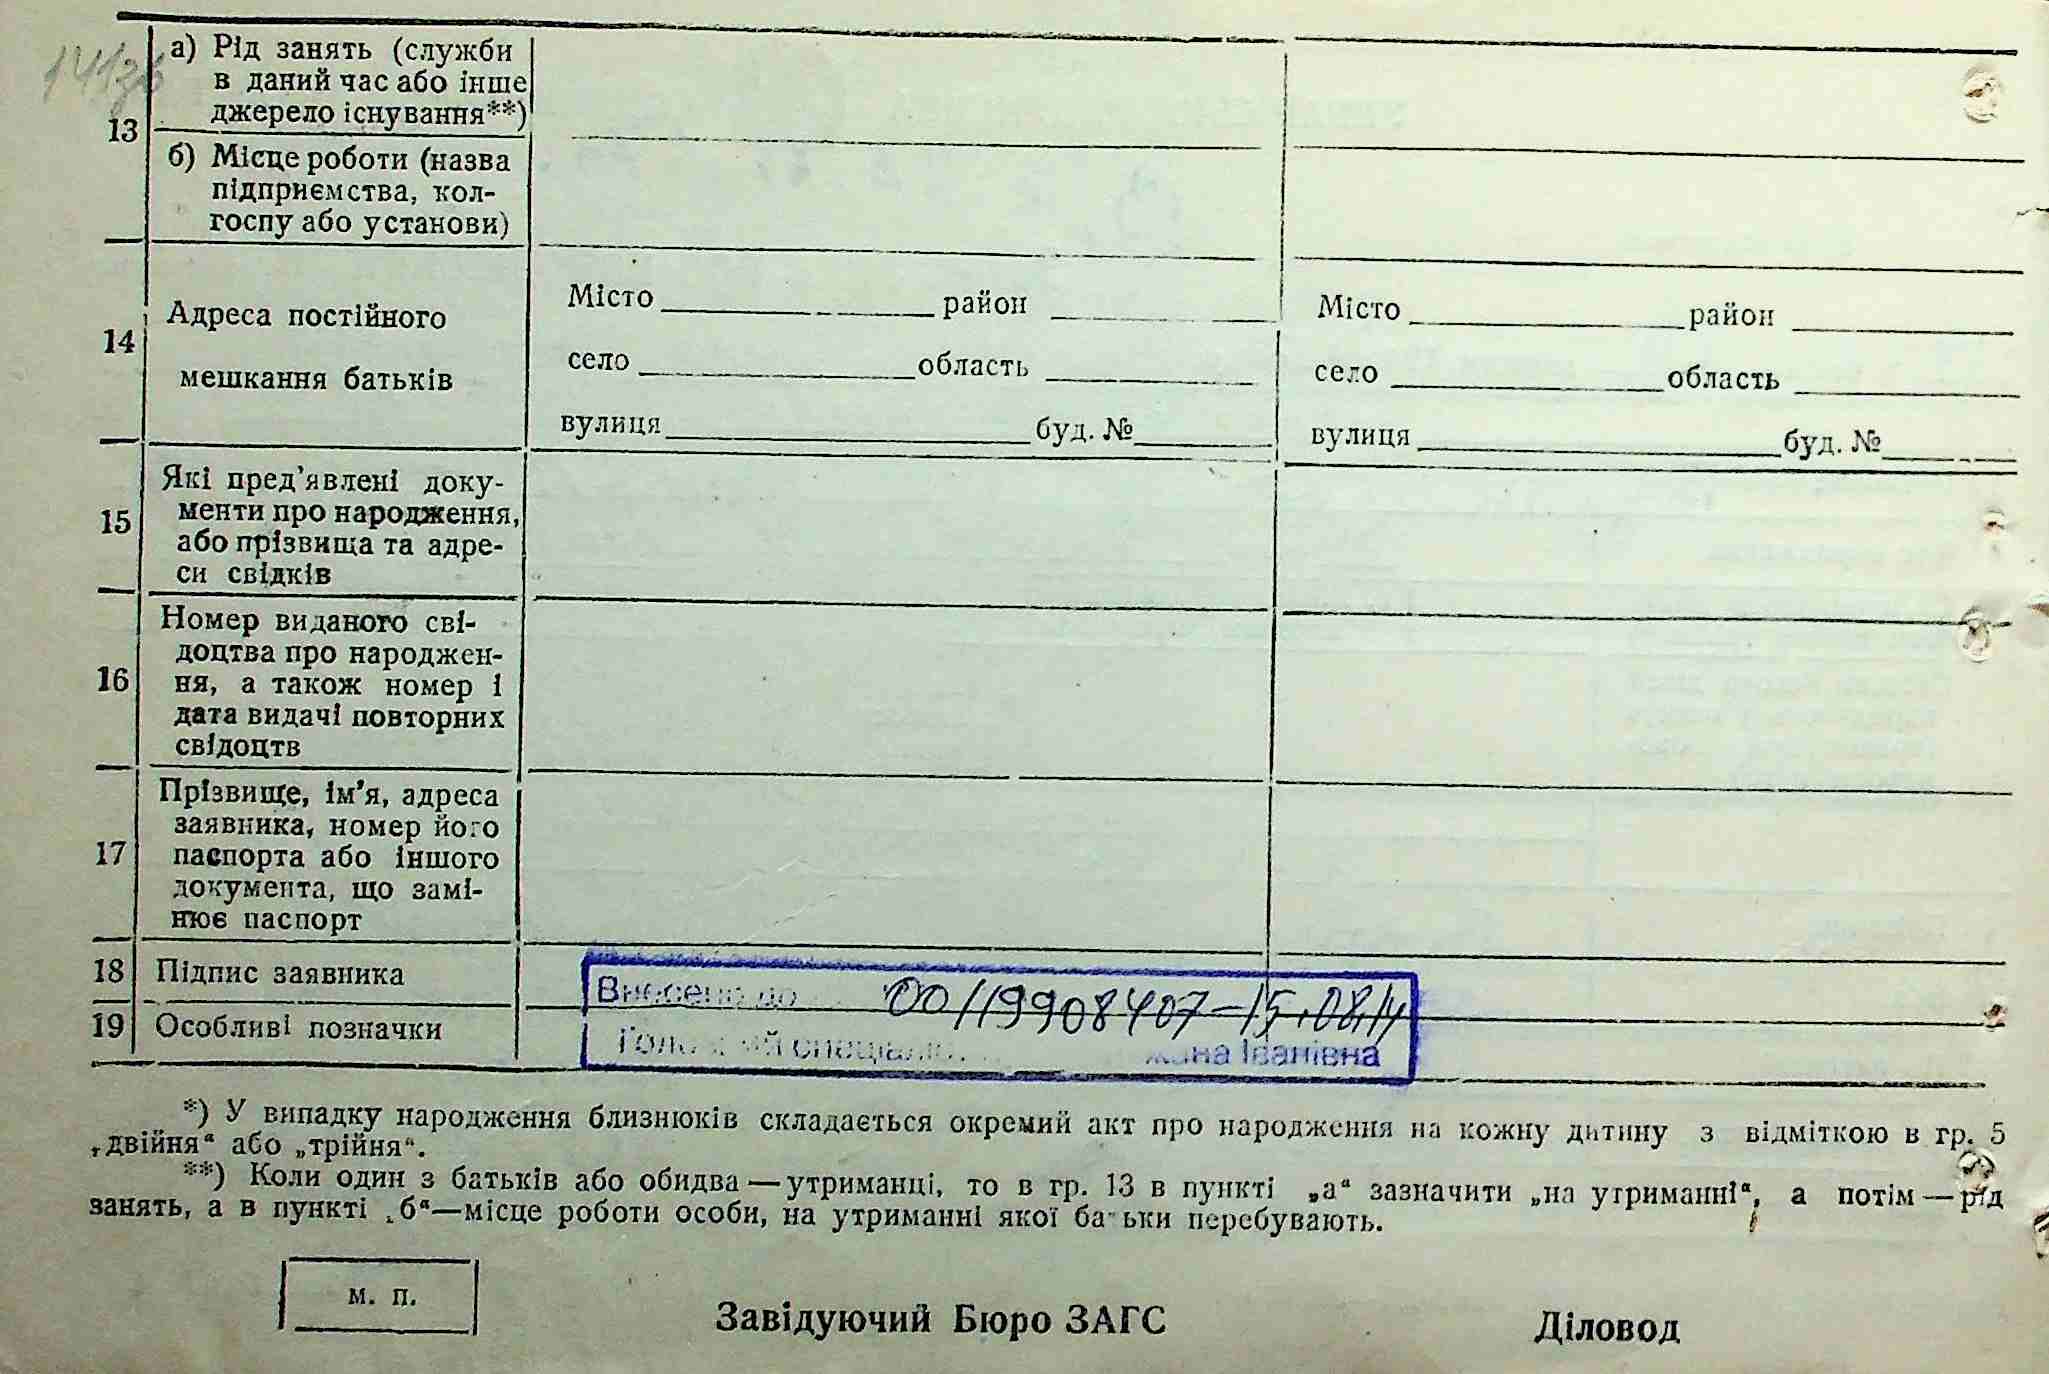 141зв
13
а) Рід занять (служби
в даний час або інше
джерело існування**)
б) Місце роботи (назва
підприємства, кол-
госпу або установи)
14
Адреса постійного
мешкання батьків
Місто район
село область
вулиця буд. №
Місто район
село область
вулиця буд. №
15
Які пред'явлені доку-
менти про народження,
або прізвища та адре-
си свідків
16
Номер виданого сві-
доцтва про народжен-
ня, а також номер і
дата видачі повторних
свідоцтв
17
Прізвище, ім'я, адреса
заявника, номер його
паспорта або іншого
документа, що замі-
нює паспорт
18 Підпис заявника
19 Особливі позначки
Внесено до 00119908407-15.08.14
Головний спеціаліст Іванівна
*) У випадку народження близнюків складається окремий акт про народження на кожну дитину з відміткою в гр. 5
„двійня“ або „трійня“.
**) Коли один з батьків або обидва—утриманці, то в гр. 13 в пункті „а“ зазначити „на утриманні“, а потім—рід
занять, а в пункті „б“—місце роботи особи, на утриманні якої батьки перебувають.
м. п.
Завідуючий Бюро ЗАГС
Діловод